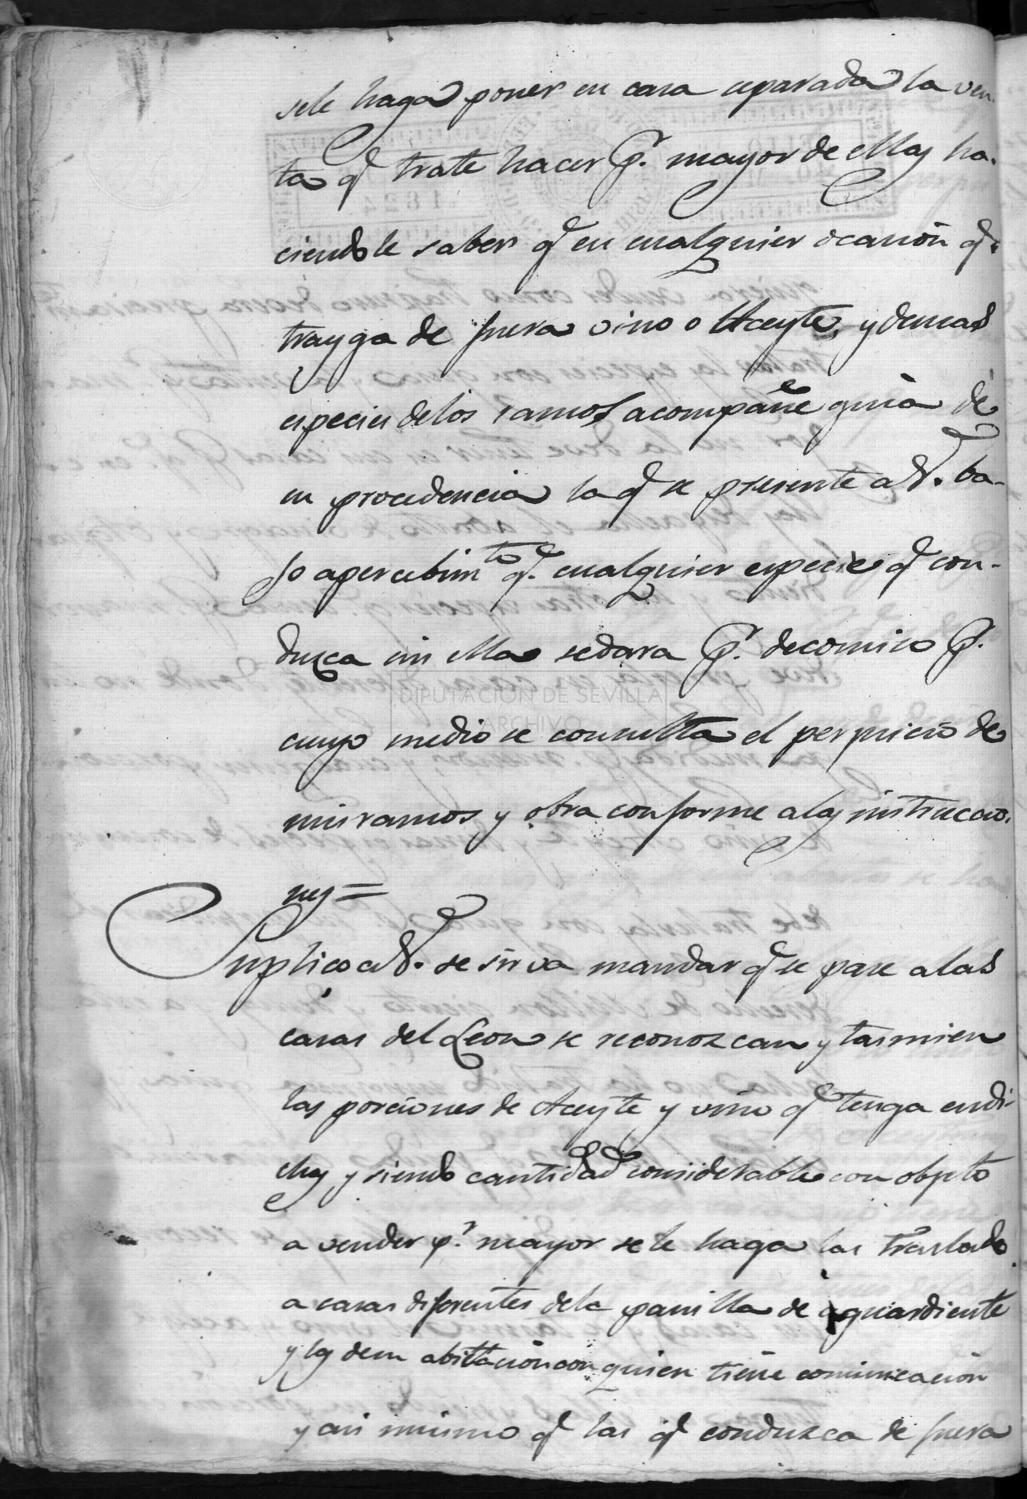 sele haga poner en casa separada la ven-
ta q.e trate hacer p.r mayor de ellas ha-
ciendole saber q.e en cualquier ocasion q.e
trayga de fuera vino o Aceyte, y demas
especies delos ramos acompañe guia de
su procedencia la q.e se presente a V. ba-
jo apercibim.to q.e cualquier especie q.e con-
duzca sin ella se dara p.r decomiso p.r
cuyo medio se consulta el perjuicio de
mis ramos y obra conforme alas instruccio-
nes =
Suplico a V. se sirva mandar q.e se pase a las
casas del Leon se reconozcan y tasmien
las porciones de Aceyte y vino q.e tenga en di-
chas y siendo cantidad considerable con objeto
a vender p.r mayor se le haga las traslade
a casas diferentes dela panilla de aguardiente
y las de su abitacion con quien tiene comunicacion
y asi mismo q.e las q.e conduzca de fuera
DIPUTACIÓN DE SEVILLA
ARCHIVO